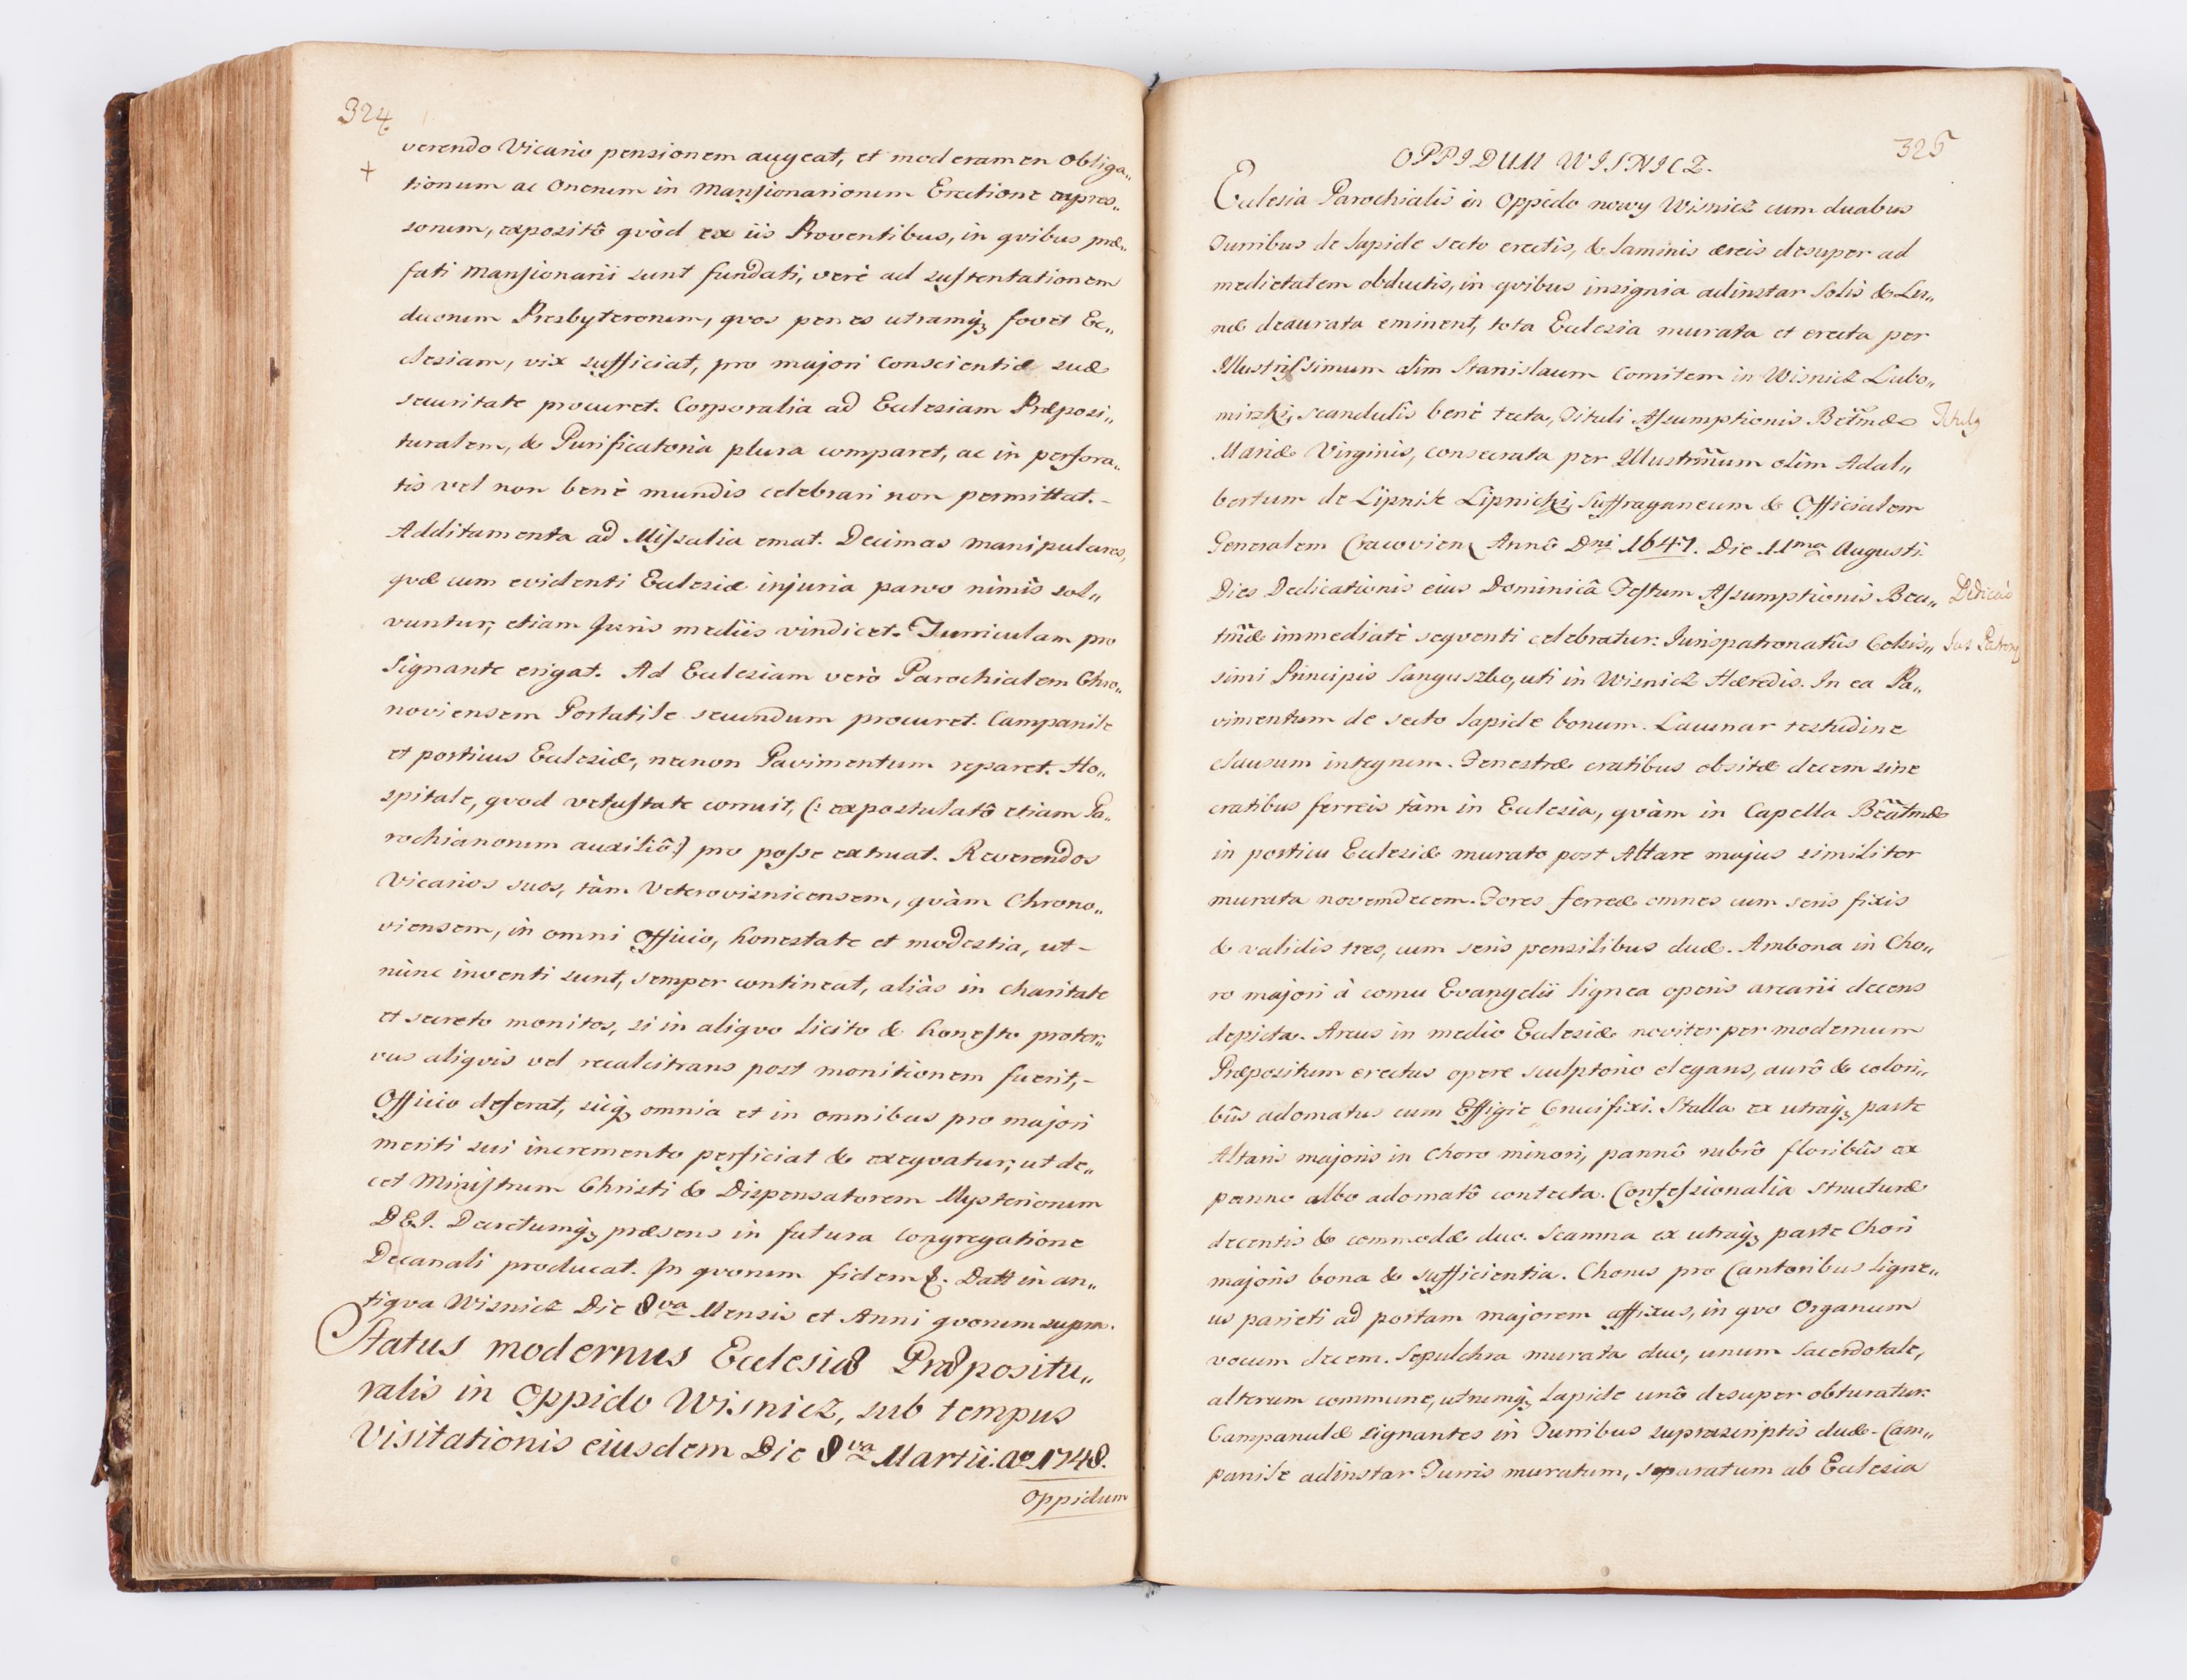 324
verendo Vicario pensionem augeat, et moderamen obliga„
tionum ac Onerum in Mansionariorum Erectione expres„
sorum, expositô qvòd ex iis Proventibus, in qvibus præ„
fati Mansionarii sunt fundati, verè ad sustentationem
duorum Presbyterorum, qvos penes utramq; fovet Ec„
clesiam, vix sufficiat, pro majori Conscientiæ suæ
securitate procuret. Corporalia ad Ecclesiam Præposi„
turalem, & Purificatoria plura comparet, ac in perfora„
tis vel non benè mundis celebrari non permittat.–
Additamenta ad Missalia emat. Decimas manipulares,
qvæ cum evidenti Ecclesiæ injuria parvo nimis sol„
vuntur, etiam Juris mediis vindicet. Turriculam pro
Signante erigat. Ad Ecclesiam verò Parochialem Chro„
noviensem Portatile secundum procuret. Campanile
et porticus Ecclesiæ, necnon Pavimentum reparet. Ho„
spitale, qvod vetustate corruit, (: expostulatô etiam Pa„
rochianorum auxiliô:) pro posse extruat. Reverendos
Vicarios suos, tàm Veterovisnicensem, qvàm Chrono„
viensem, in omni Officio, honestate et modestia, ut–
nùnc inventi sunt, semper contineat, aliàs in charitate
et secreto monitos, si in aliqvo licito & honesto proter„
vus aliqvis vel recalcitrans post monitionem fuerit,–
Officio deferat, sicq; omnia et in omnibus pro majori
meriti sui incremento perficiat & exeqvatur; ut de„
cet Ministrum Christi & Dispensatorem Mysteriorum
DEI. Decretumq; præsens in futura Congregatione
Decanali producat. In qvorum fidem &. Datt in an„
tiqva Wisnicz Die 8va Mensis et Anni qvorum supra.
Status modernus Ecclesiæ Præpositu„
ralis in Oppido Wisnicz, sub tempus
Visitationis eiusdem Die 8va Martii. Ao 1748.
Oppidum
325
OPPIDUM WISNICZ.
Ecclesia Parochialis in Oppido nowy Wisnicz cum duabus
Turribus de lapide secto erectis, & laminis æreis desuper ad
medietatem obductis, in qvibus insignia adinstar Solis & Lu„
næ deaurata eminent, tota Ecclesia murata et erecta per
Illustrissimum olim Stanislaum Comitem in Wisnicz Lubo„
mirski, scandulis benè tecta, Tituli Assumptionis Bettmæ
Mariæ Virginis, consecrata per Illustrm̃um olim Adal„
bertum de Lipnik Lipnicki, Suffraganeum & Officialem
Generalem Cracovien Annô Dni 1647. Die 11ma Augusti.
Dies Dedicationis eius Dominicâ Festum Assumptionis Bea„
tm̃æ immediatè seqventi celebratur. Jurispatronatûs Celsis„
simi Principis Sanguszko, uti in Wisnicz Hæredis. In ea Pa„
vimentum de secto lapide bonum. Lacunar testudine
clausum integrum. Fenestræ cratibus obsitæ decem sine
cratibus ferreis tàm in Ecclesia, qvàm in Capella Beatmæ
in porticu Ecclesiæ murato post Altare majus similiter
murata novemdecem. Fores ferreæ omnes cum seris fixis
& validis tres, cum seris pensilibus duæ. Ambona in Cho„
ro majori à cornu Evangelii lignea operis arcarii decens
depicta. Arcus in medio Ecclesiæ noviter per modernum
Præpositum erectus opere sculptorio elegans, aurô & colori„
bûs adornatus cum Effigie Crucifixi. Stalla ex utraq; parte
Altaris majoris in Choro minori, pannô rubrô floribûs ex
panno albo adornatô contecta. Confessionalia structuræ
decentis & commodæ duo. Scamna ex utraq; parte Chori
majoris bona & sufficientia. Chorus pro Cantoribus ligne„
us parieti ad portam majorem affixus, in qvo Organum
vocum decem. Sepulchra murata duo, unum Sacerdotale,
alterum commune, utrumq; lapide unô desuper obturatur.
Campanulæ signantes in Turribus suprascriptis duæ. Cam„
panile adinstar Turris muratum, separatum ab Ecclesia